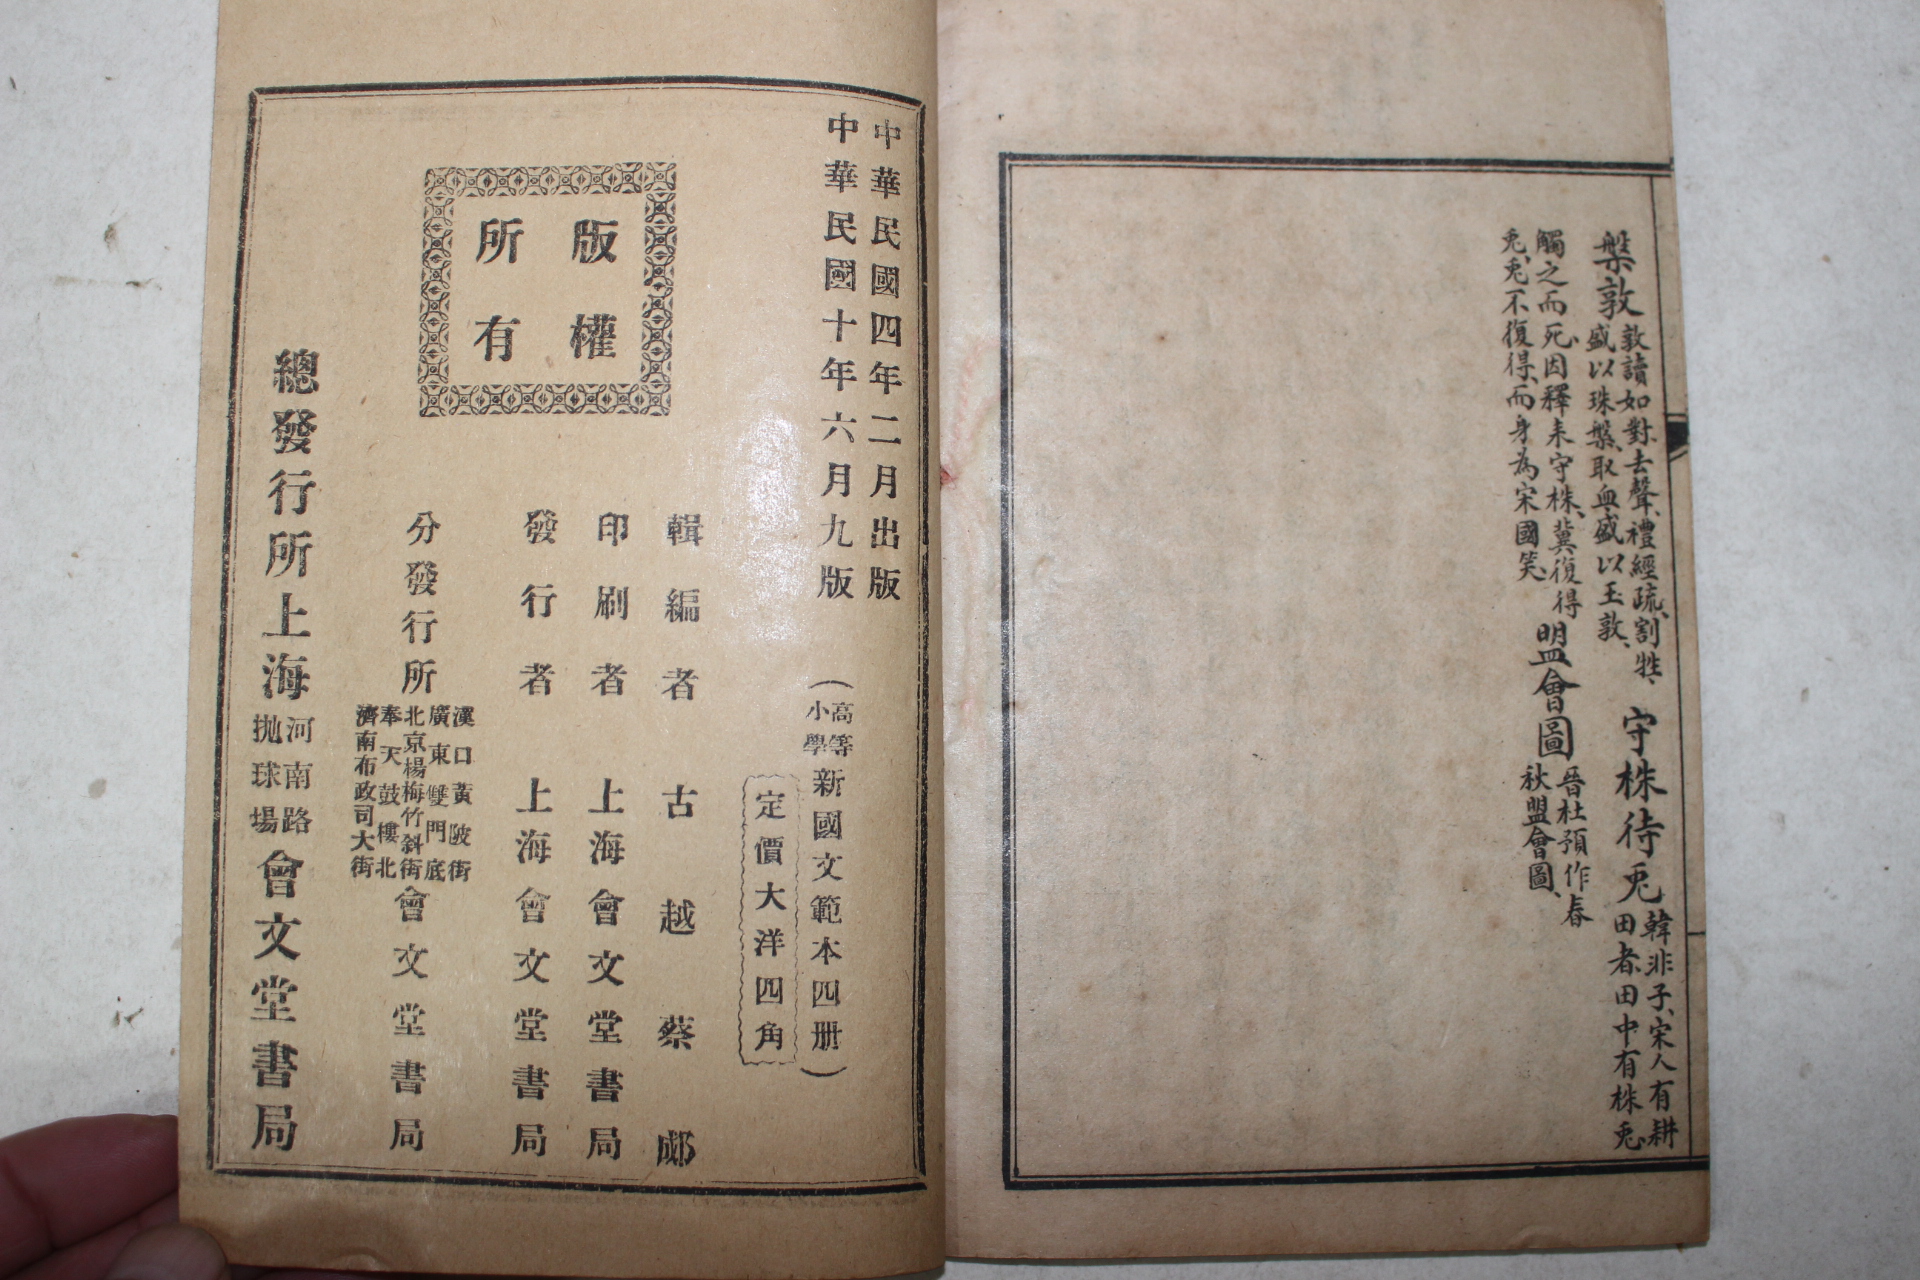 槃敦
敦讀如對去聲、禮經疏、割牲、
盛以珠槃、取血盛以玉敦、
守株待兎
韓非子、宋人有耕
田者、田中有株、兎
觸之而死、因釋耒守株、冀復得
兎、兎不復得、而身為宋國笑、
盟會圖
晉杜預作春
秋盟會圖、
中華民國四年二月出版
中華民國十年六月九版
(高等小學新國文範本四册)
定價大洋四角
版權
所有
輯編者 古越蔡郕
印刷者 上海會文堂書局
發行者 上海會文堂書局
分發行所
漢口黃陂街
廣東雙門底
北京楊梅竹斜街
奉天鼓樓北
濟南布政司大街
會文堂書局
總發行所上海
河南路
拋球場
會文堂書局